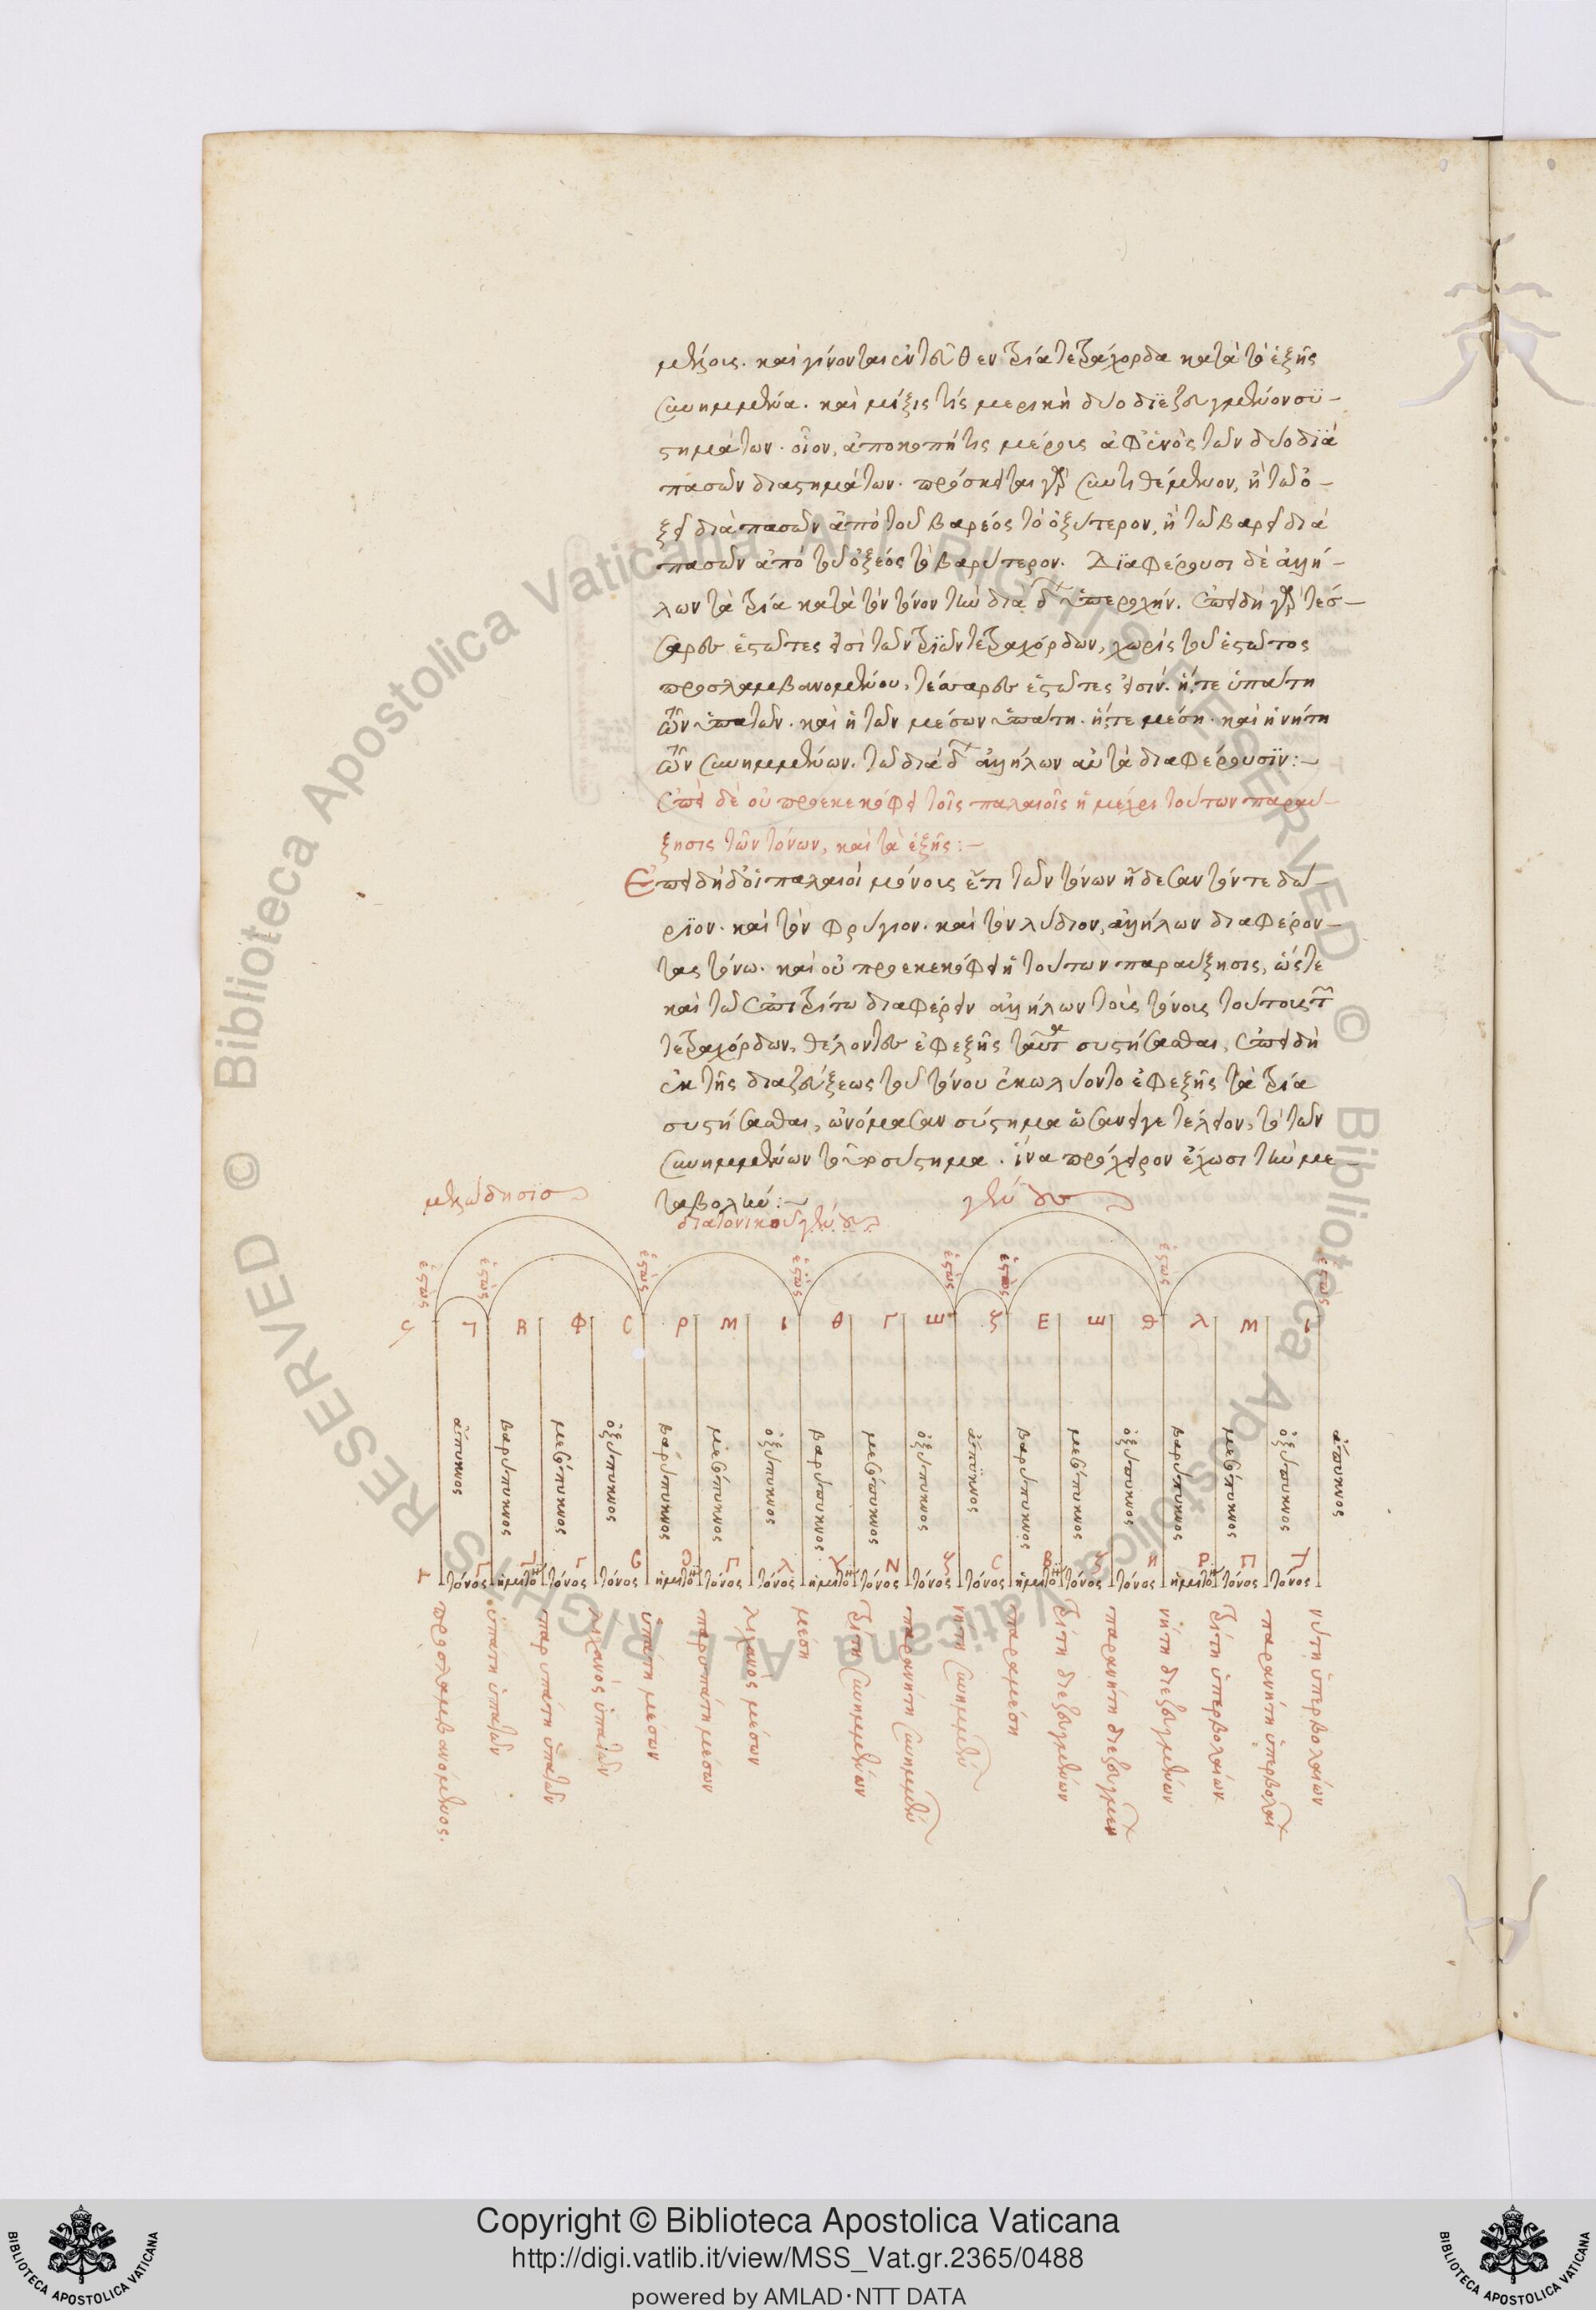 μένοις. καὶ γίνονται ἐντεῦθεν τρία τετράχορδα κατὰ τὸ ἑξῆς
συνημμένα. καὶ μίξις τίς μερικὴ δύο διεζευγμένων συ-
στημάτων. οἷον, ἀποκοπή τις μέρους ἀφ' ἑνὸς τῶν δύο διὰ
πασῶν διαστημάτων. πρόσκειται γὰρ συντιθέμενον, ἢ τῶ ὀ-
ξεῖ διὰ πασῶν ἀπὸ τοῦ βαρέος τὸ ὀξύτερον, ἢ τῶ βαρεῖ διὰ
πασῶν ἀπὸ τοῦ ὀξέος τὸ βαρύτερον. Διαφέρουσι δὲ ἀλλή-
λων τὰ τρία κατὰ τὸν τόνον τὴν διὰ δ ὑπεροχήν. ἐπειδὴ γὰρ τέσ-
σαρες ἑστῶτες εἰσὶ τῶν τριῶν τετραχόρδων, χωρὶς τοῦ ἑστῶτος
προσλαμβανομένου, τέσσαρες ἑστῶτες εἰσίν. ἥ, τε ὑπάτη
τῶν ὑπατῶν. καὶ ἡ τῶν μέσων ὑπάτη. ἥ, τε μέση. καὶ ἡ νήτη
τῶν συνημμένων. τῶ διὰ δ ἀλλήλων αὐτὰ διαφέρουσιν:-
Ἐπεὶ δὲ οὐ προεκεκόφει τοῖς παλαιοῖς ἡ μέχρι τούτων παραύ-
ξησις τῶν τόνων, καὶ τὰ ἑξῆς:-
Ἐπειδὴ δ' οἱ παλαιοὶ μόνους ἐπὶ τῶν τόνων ἤδεσαν τόν τε δώ-
ριον. καὶ τὸν φρύγιον. καὶ τὸν λύδιον, ἀλλήλων διαφέρον-
τας τόνω. καὶ οὐ προεκεκόφει ἡ τούτων παραύξησις, ὥστε
καὶ τῶ ἐπιτρίτω διαφέρειν ἀλλήλων τοὺς τόνους τούτους τῶν
τετραχόρδων, θέλοντες ἐφεξῆς συστήσασθαι, ἐπειδὴ
ἐκ τῆς διαζεύξεως τοῦ τόνου ἐκωλύοντο ἐφεξῆς τὰ τρία
συστήσασθαι, ὠνόμασαν σύστημα ὡσανεί γε τέλειον, τὸ τῶν
συνημμένων τοῦτο σύστημα. ἵνα πρόχειρον ἔχωσι τὴν με-
ταβολήν:-
μελώδησις
γένους
διατονικοῦ γένους
ἑστὼς ἑστὼς ἑστὼς ἑστὼς ἑστὼς ἑστὼς ἑστὼς ἑστὼς
R Φ C Ρ Μ Ι Θ Γ Ш ζ Ε Ш λ Μ Ι
ἄπυκνος
βαρύπυκνος
μεσόπυκνος
ὀξύπυκνος
βαρύπυκνος
μεσόπυκνος
ὀξύπυκνος
βαρύπυκνος
μεσόπυκνος
ὀξύπυκνος
ἄπυκνος
βαρύπυκνος
μεσόπυκνος
ὀξύπυκνος
βαρύπυκνος
μεσόπυκνος
ὀξύπυκνος
ἄπυκνος
τόνος ἡμιτό τόνος τόνος ἡμιτό τόνος τόνος ἡμιτό τόνος τόνος τόνος ἡμιτό τόνος τόνος ἡμιτό τόνος τόνος
προσλαμβανόμενος.
ὑπάτη ὑπατῶν
παρυπάτη ὑπατῶν
λιχανὸς ὑπατῶν
ὑπάτη μέσων
παρυπάτη μέσων
λιχανὸς μέσων
μέση
τρίτη συνημμένων
παρανήτη συνημμέν
νήτη συνημμέν
παραμέση
τρίτη διεζευγμένων
παρανήτη διεζευγμεν
νήτη διεζευγμένων
τρίτη ὑπερβολαίων
παρανήτη ὑπερβολαί
νήτη ὑπερβολαίων
© Biblioteca Apostolica Vaticana ALL RIGHTS RESERVED © Biblioteca Apostolica Vaticana ALL RIGHTS RESERVED
Copyright © Biblioteca Apostolica Vaticana
http://digi.vatlib.it/view/MSS_Vat.gr.2365/0488
powered by AMLAD·NTT DATA
BIBLIOTECA APOSTOLICA VATICANA
BIBLIOTECA APOSTOLICA VATICANA